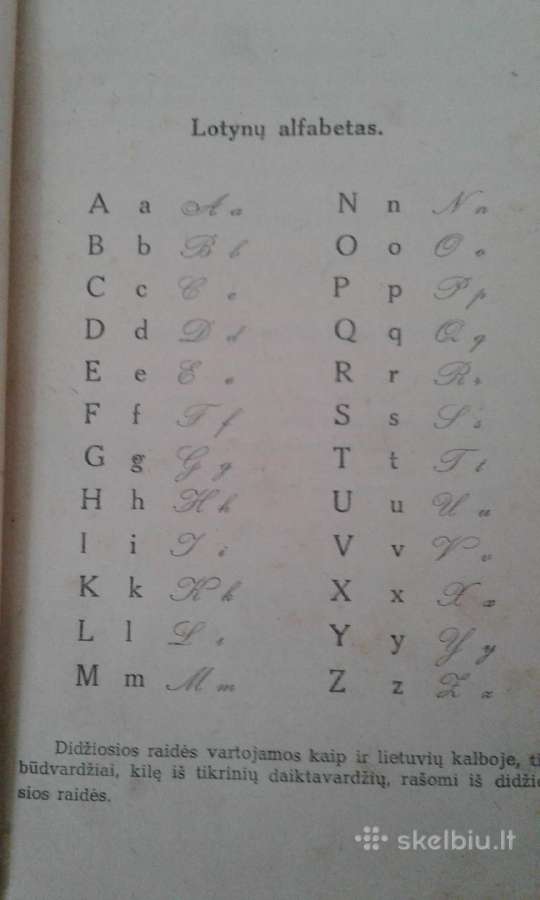 Lotynų alfabetas.
A a A a N n N n
B b B b O o O o
C c C c P p P p
D d D d Q q Q q
E e E e R r R r
F f F f S s S s
G g G g T t T t
H h H h U u U u
I i I i V v V v
K k K k X x X x
L l L l Y y Y y
M m M m Z z Z z
Didžiosios raidės vartojamos kaip ir lietuvių kalboje,
būdvardžiai, kilę iš tikrinių daiktavardžių, rašomi iš didžio
sios raidės.
skelbiu.lt